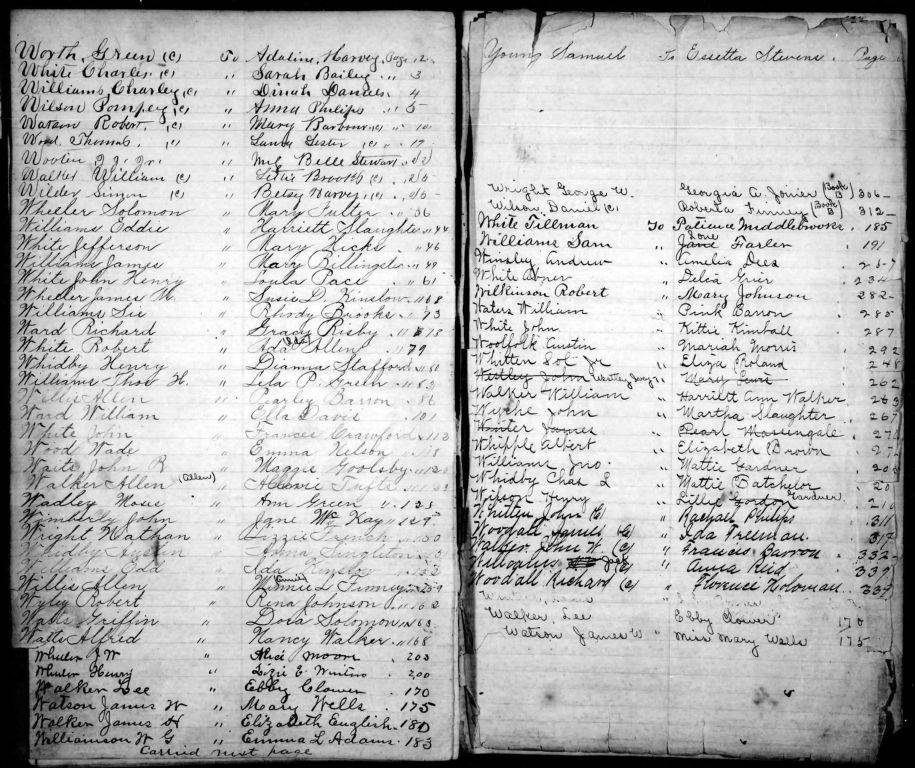 Worth, Green (c) To Adaline Harvey Page 2
White Charles (c) " Sarah Bailey " 3
Williams Charley (c) " Dinah Daniels 4
Wilson Pompey (c) " Anna Philips " 5
Watson Robert. (c) " Mary Barbour (c) " 10
Wood Thomas. (c) " Laura Lester (c) " 17
Wooten Jr. " Mrs Belle Stewart
Walker William (c) " Brooks (c) " 25
Wilder Simon (c) " Betsy Harvey (c)
Wheeler Solomon " Mary Fuller " 36
Williams Eddie " Harriett Slaughter " 44
White Jefferson " Mary Hicks " 46
Williams James " Mary Billingslea " 49
White John Henry " Loula Pace " 61
Wheeler James M. " Susie D. Winslow " 68
Williams " Rhody Brooks " 73
Ward Richard " Grady Risby " 78
White Robert " Ada Allen " 79
Whidby Henry " Dianna Stafford
Williams Thos H. " Lela P. Green " 83
Willis Allen " Pearley Barron " 86
Ward William " Ella Davis " 101
White John " Frances Crawford " 113
Wood Wade " Emma Nelson
Waite John R " Maggie Goolsby
Walker Allen (Allen) " Tufts
Wadley Mose " Ann Green " 125
Wimberly John " Jane McKay " 129
Wright Nathan " Lizzie French
Whidby " Singleton
Williams Edd " Ada
Willis Allen " Minnie L Finney
Wyley Robert " Rena Johnson " 162
Watts Griffin " Dora Solomon
Watts Alfred " Nancy Walker " 168
Wheeler J W " Alice Moore " 203
Wheeler Henry " Lizzie E Winters " 200
Walker Lee " Ebby Clower " 170
Watson James W " Mary Wells " 175
Walker James H " Elizabeth English " 180
Williamson W G " Emma L Adams " 183
Carried next page
Young Samuel To Essetta Stevens. Page
Wright George W. Georgia A. Joiner (Book B) 306
Wilson, Daniel (c) Roberta Finney (Book B) 312
White Tillman To Patience Middlebrooks 185
Williams Sam " Jane Love Farler 191
Winsley Andrew " Amelia Dees
White Abner " Delia Grier 234
Wilkinson Robert " Mary Johnson 282
Waters William " Pink Barron 285
White John " Kittie Kimball 287
Woolfolk Austin " Mariah Morris 292
Whitten Sol Jr " Eliza Roland 248
John " Mary Lewis 262
Walker William " Harriett Ann Walker 263
Wyche John " Martha Slaughter 267
James " Pearl Massingale
Whipple Albert " Elizabeth Brown
Williams Jno. " Mattie Gardner
Whidby Chas L " Mattie Batchelor
Wilson Henry " Lillie Gordon Gardner
Whitten John (c) " Rachael Philips 311
Woodall James (c) " Ida Freeman 317
Walker John W. (c) " Francis Barron 332
Jack (c) " Anna Reid 339
Woodall Richard (c) " Florence Holoman 339
Walker, Lee Ebby Clower 170
Watson James W " Miss Mary Wells 175